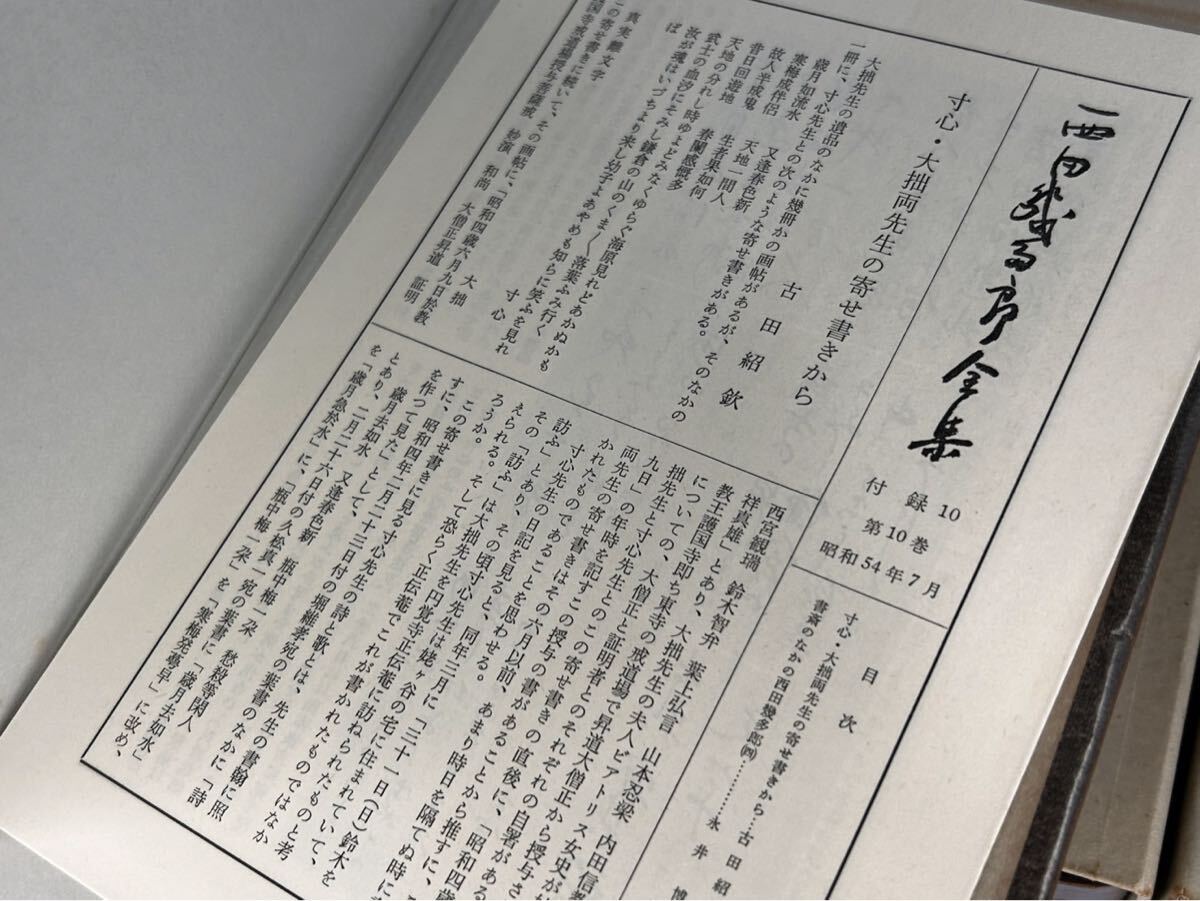 西田幾多郎全集
付録10
第10巻
昭和54年7月
目次
寸心・大拙両先生の寄せ書きから…古田紹
書斎のなかの西田幾多郎㈣…………永井博
寸心・大拙両先生の寄せ書きから
古田紹欽
大拙先生の遺品のなかに幾冊かの画帖があるが、そのなかの
一冊に、寸心先生との次のような寄せ書きがある。
歳月如流水　又逢春色新
寒梅成伴侶　天地一間人
故人半成鬼　生者果如何
昔日回遊地　春蘭感慨多
天地の分れし時ゆよどみなくゆらぐ海原見れどあかぬかも
武士の血汐にそみし鎌倉の山のくま〳〵落葉ふみ行く
汝が魂はいづちより来し幼子よあやめも知らに笑ふを見れ
ば
寸心
真実離文字
大拙
この寄せ書きに続いて、その画帖に、「昭和四歳六月九日於教
王護国寺戒道場授与菩薩戒　妙演　和尚　大僧正昇道　証明
西宮観瑞　鈴木智弁　葉上弘言　山本忍梁　内田信教
祥真雄」とあり、大拙先生の夫人ビアトリス女史が
教王護国寺即ち東寺の戒道場で昇道大僧正から授与さ
についての、大僧正と証明者とのそれぞれの自署があ
拙先生と寸心先生とのこの寄せ書きの直後に、「昭和四歳
九日」の年時を記すこの授与の書があることから推すに、
両先生の寄せ書きはその六月以前、あまり時日を隔てぬ時に
かれたものであることを思わせる。
寸心先生の日記を見ると、同年三月に「三十一日(日)鈴木を
訪ふ」とあり、その頃寸心先生は姥ヶ谷の宅に住まれていて、
その「訪ふ」は大拙先生を円覚寺正伝菴に訪ねられたものと考
えられる。そして恐らく正伝菴でこれが書かれたものではなか
ろうか。
この寄せ書きに見る寸心先生の詩と歌とは、先生の書翰に照
すに、昭和四年二月二十三日付の堀維孝宛の葉書のなかに「詩
を作つて見た」として、
歳月去如水　又逢春色新　瓶中梅一朶　愁殺等閑人
とあり、二月二十六日付の久松真一宛の葉書に「歳月去如水」
を「歳月急於水」に、「瓶中梅一朶」を「寒梅発雩早」に改め、